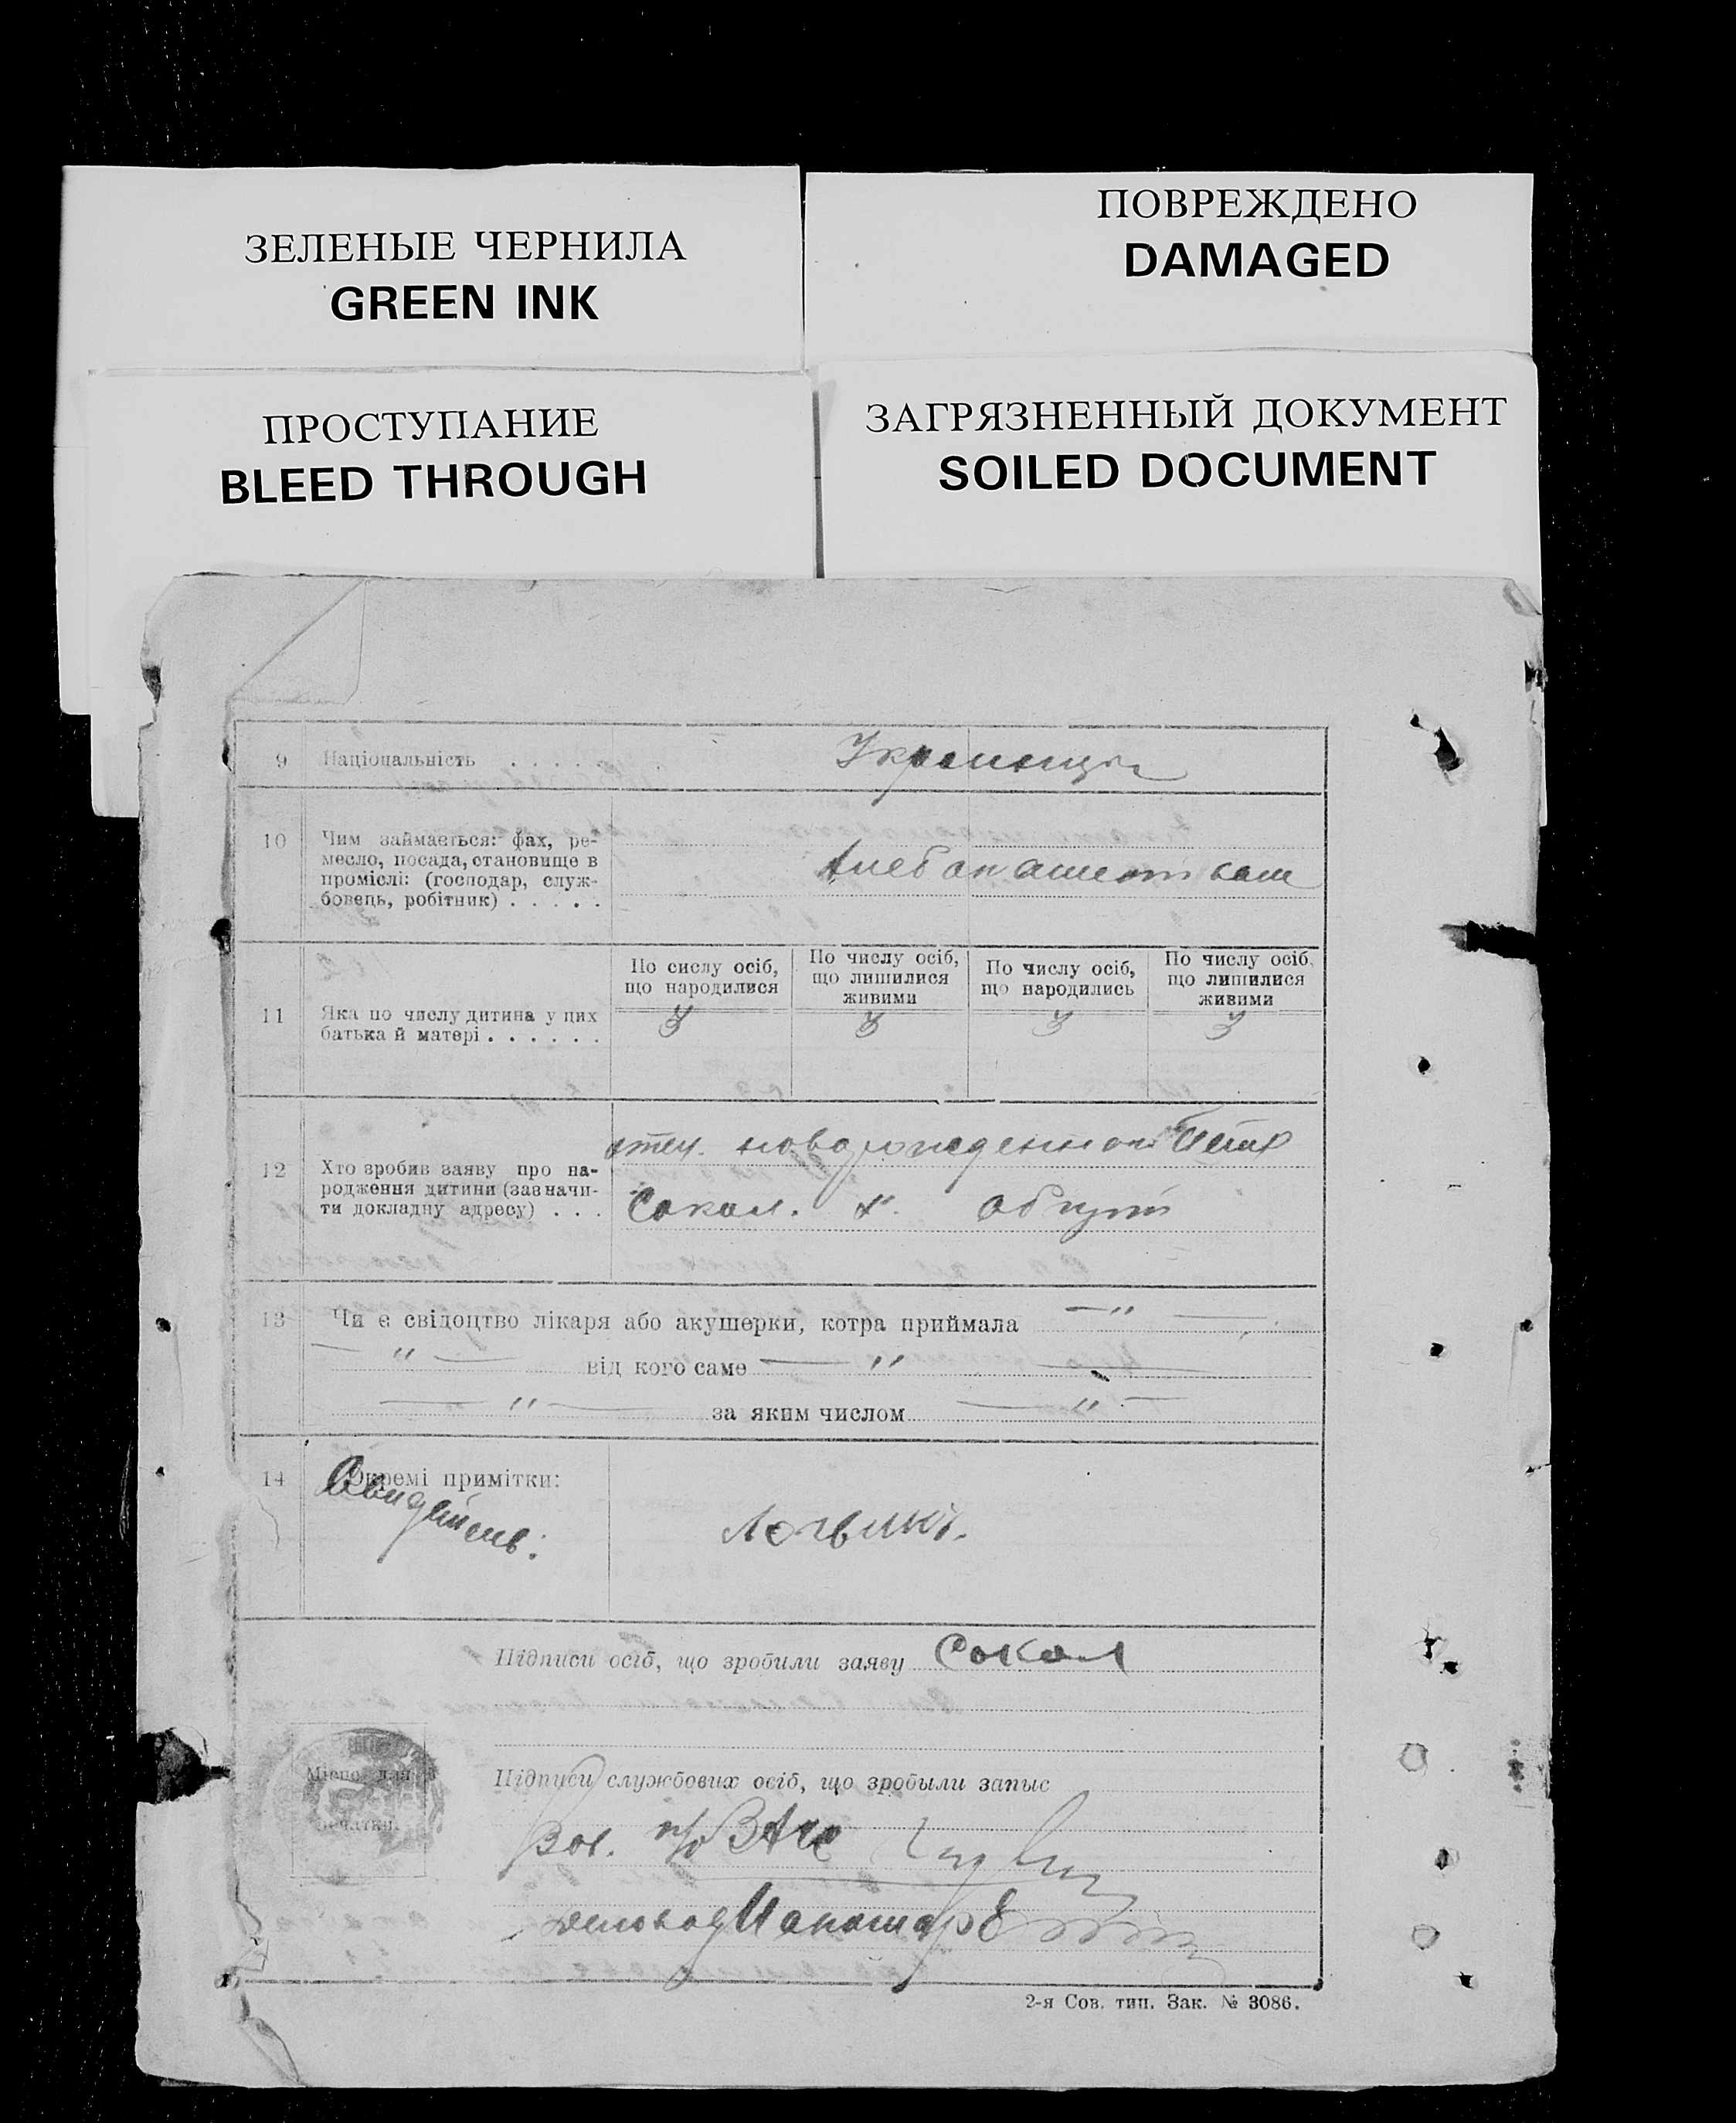 ЗЕЛЕНЫЕ ЧЕРНИЛА
GREEN INK
ПОВРЕЖДЕНО
DAMAGED
ПРОСТУПАНИЕ
BLEED THROUGH
ЗАГРЯЗНЕННЫЙ ДОКУМЕНТ
SOILED DOCUMENT
9 Національність . . . . .
10 Чим займається: фах, ре-
месло, посада, становище в
проміслі: (господар, служ-
бовець, робітник) . . . . .
Хлебопашеством
11 Яка по числу дитина у цих
батька й матері . . . . . .
По сислу осіб,
що народилися
3
По числу осіб,
що лишилися
живими
3
По числу осіб,
що народились
3
По числу осіб,
що лишилися
живими
3
12 Хто зробив заяву про на-
родження дитини (зазначи-
ти докладну адресу) . . .
отец новорожденной Петр
Сокол. х.
13 Чи є свідоцтво лікаря або акушерки, котра приймала — " —
— " — від кого саме — " —
— " — за яким числом — " —
14 Окремі примітки:
Свидетель:
Логвин
Підписи осіб, що зробили заяву Сокол
Місце для
печатки.
Підписи службових осіб, що зробыли запыс
Зав. п/о ЗАГС
Деловод
2-я Сов. тип. Зак. № 3086.